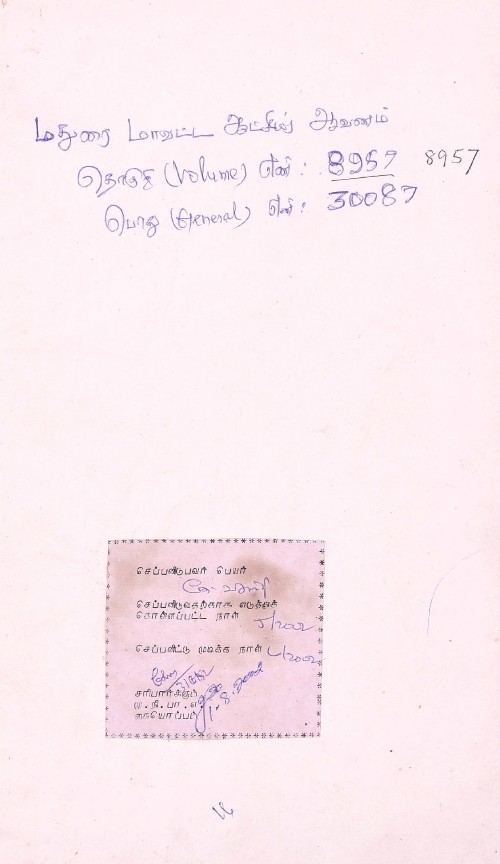 மதுரை மாவட்ட ஆட்சியர் ஆவணம்
தொகுதி (Volume) எண்: 8957 8957
பொது (General) எண்: 30087
செப்பனிடுபவர் பெயர்
செப்பனிடுவதற்காக எடுத்துக்
கொள்ளப்பட்ட நாள் 5/2002
செப்பனிட்டு முடித்த நாள்
சரிபார்க்கும்
மு.நி.பா.எ.
கையொப்பம்